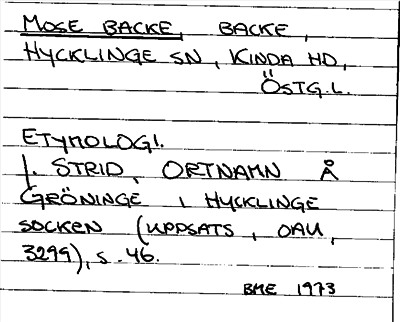 MOSE BACKE, BACKE,
HYCKLINGE SN, KINDA HD,
ÖSTG.L.
ETYMOLOGI.
J. STRID, ORTNAMN Å
GRÖNINGE I HYCKLINGE
SOCKEN (UPPSATS, OAU,
3299), S. 46.
BME 1973